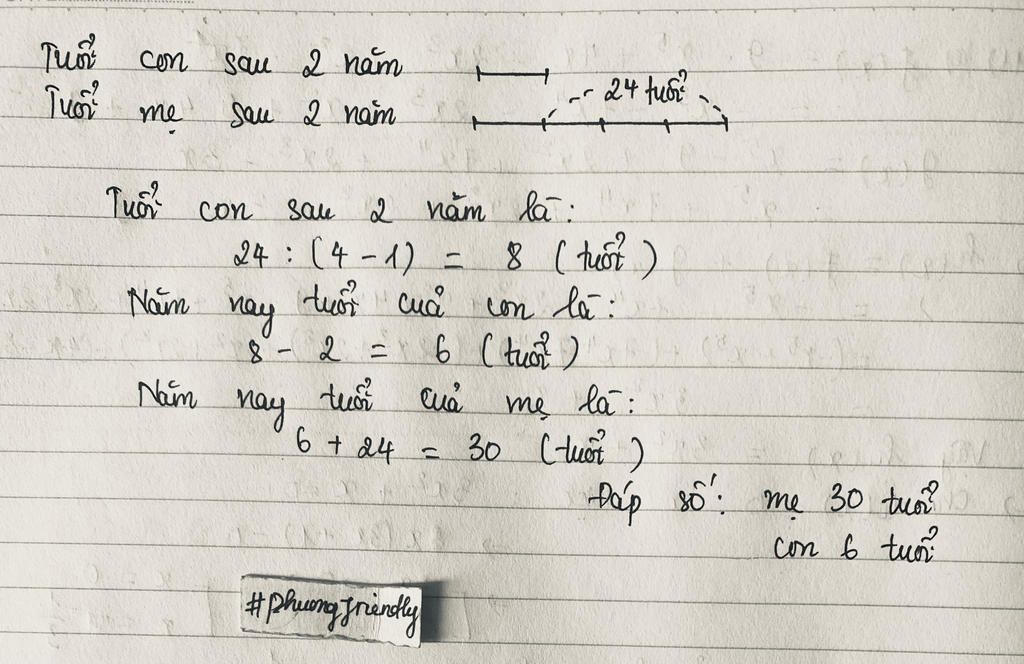 Tuổi con sau 2 năm
24 tuổi
Tuổi mẹ sau 2 năm
Tuổi con sau 2 năm là:
24 : (4 - 1) = 8 (tuổi)
Năm nay tuổi của con là:
8 - 2 = 6 (tuổi)
Năm nay tuổi của mẹ là:
6 + 24 = 30 (tuổi)
Đáp số: mẹ 30 tuổi
con 6 tuổi
#phuongfriendly